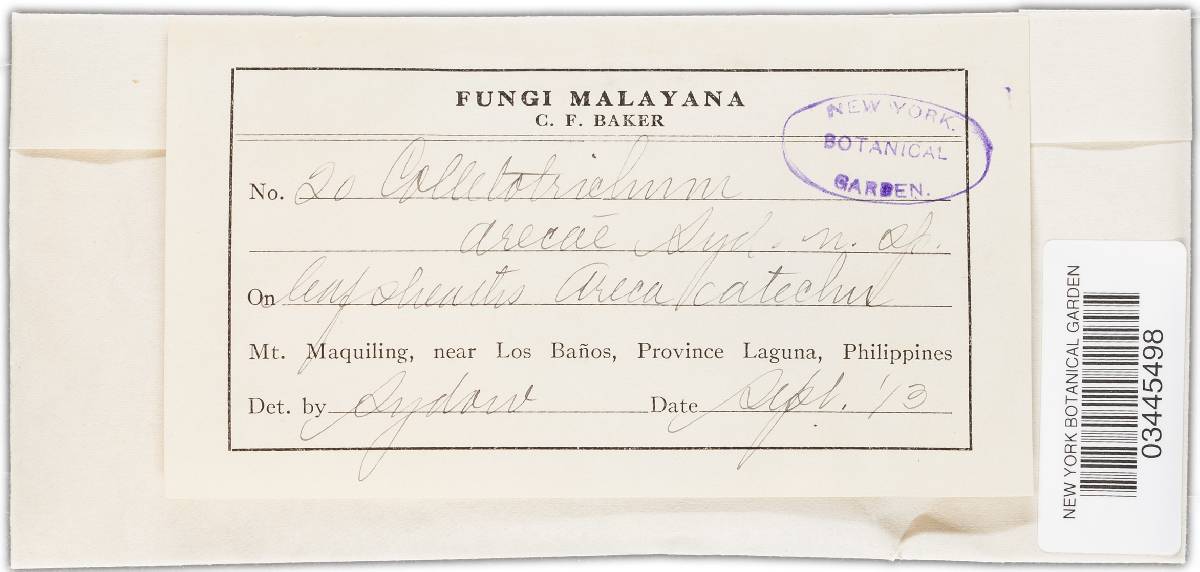 FUNGI MALAYANA
C. F. BAKER
NEW YORK
BOTANICAL
GARDEN.
No. 20 Colletotrichum
arecae Syd. n. sp.
On leaf sheaths Areca catechu
Mt. Maquiling, near Los Baños, Province Laguna, Philippines
Det. by Sydow Date Sept. '13
NEW YORK BOTANICAL GARDEN
03445498